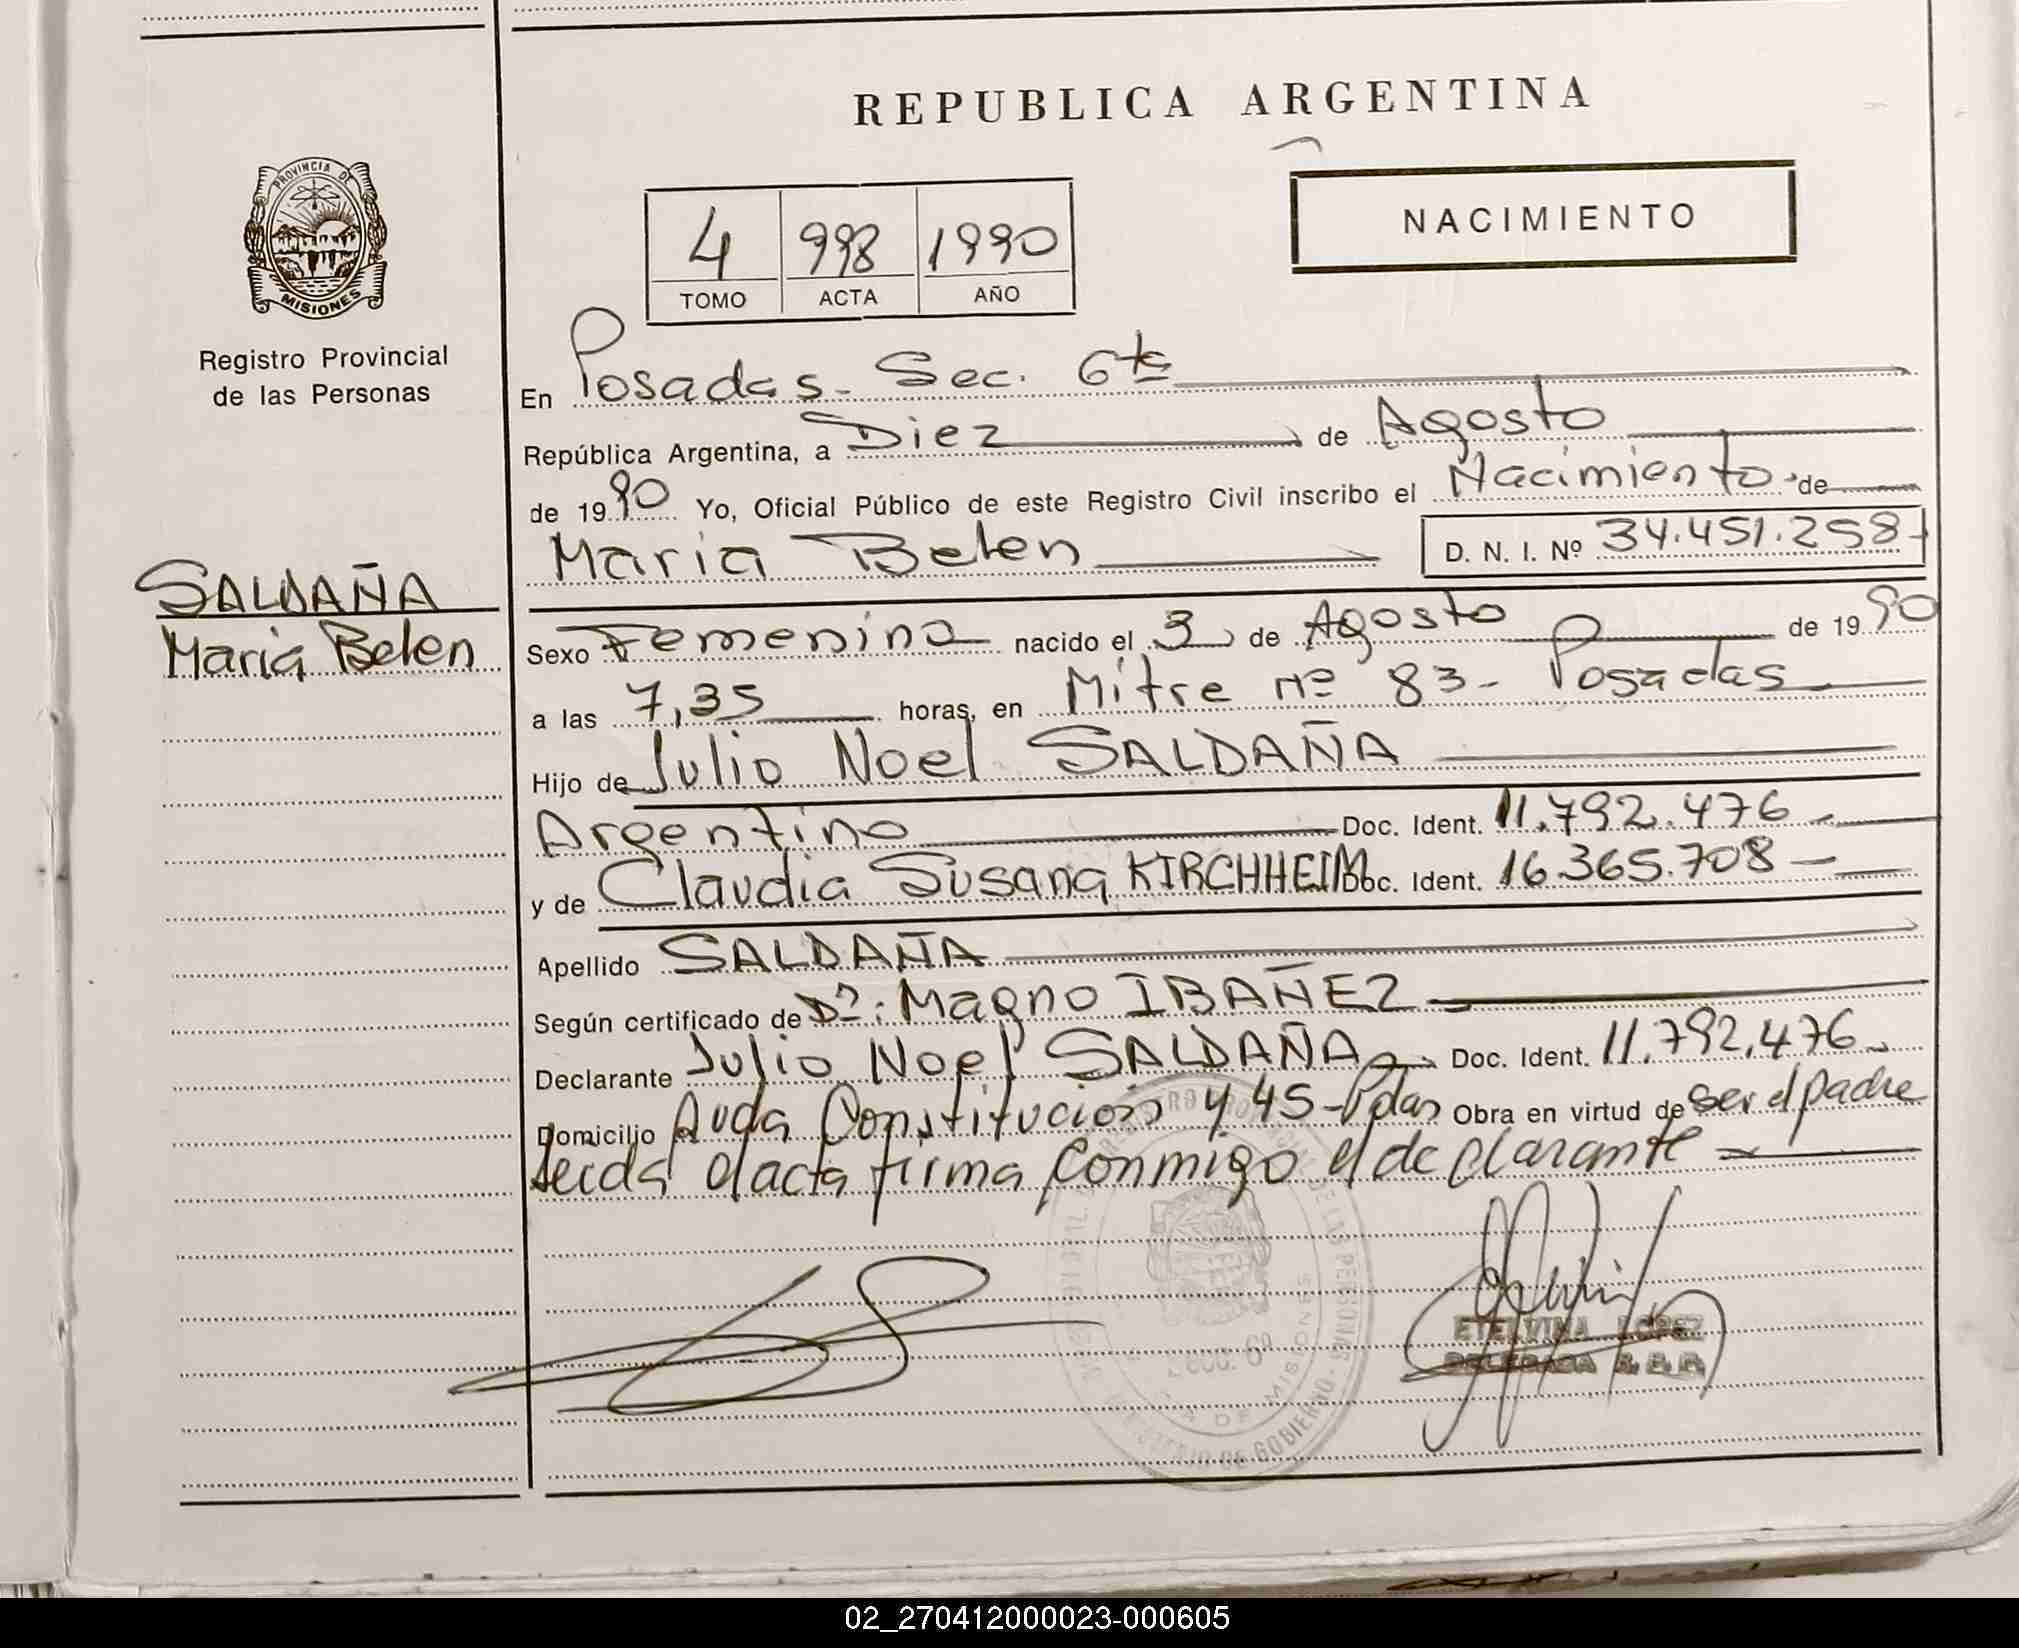 REPUBLICA ARGENTINA
PROVINCIA DE
MISIONES
Registro Provincial
de las Personas
NACIMIENTO
4 998 1990
TOMO ACTA AÑO
En Posadas - Sec. 6ta
República Argentina, a Diez de Agosto
de 1990 Yo, Oficial Público de este Registro Civil inscribo el Nacimiento de
Maria Belen D. N. I. Nº 34.451.258
SALDAÑA
Maria Belen
Sexo Femenino nacido el 3 de Agosto de 1990
a las 7,35 horas, en Mitre nº 83 - Posadas
Hijo de Julio Noel SALDAÑA
Argentino Doc. Ident. 11.792.476
y de Claudia Susana KIRCHHEIM Doc. Ident. 16.365.708
Apellido SALDAÑA
Según certificado de Dr: Magno IBAÑEZ
Declarante Julio Noel SALDAÑA Doc. Ident. 11.792.476
Domicilio Avda Constitucion y 45 - Pdas Obra en virtud de ser el padre
Leida el acta firma conmigo el declarante
ETELVINA LOPEZ
DELEGADA R.P.P.
SECC. 6ª
02_270412000023-000605